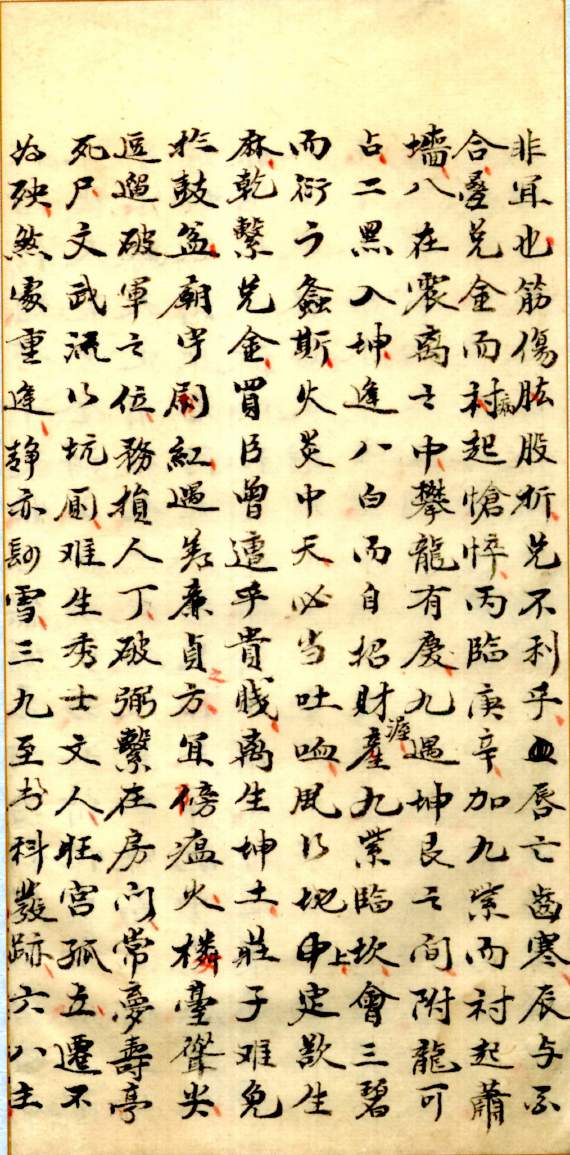 非宜也筋傷肱股折兑不利乎血唇亡齒寒辰与
合疊兑金而衬起愴悴丙臨庚辛加九紫而衬起蕭
墻八在震离之中攀龍有慶九遇坤艮之间附龍可
占二黑入坤逢八白而自招財產九紫臨坎會三碧
而衍于螽斯火炎中天必当吐風行地上定歎生
麻乾繫兑金買臣曾遭乎貴賤离生坤土莊子难免
扵鼓盆廟宇刷紅遇着廉貞方宜傍瘟火楼臺聳尖
逗遛破軍之位務損人丁破弼繫在房门常夢壽亭
死尸文武流以坑厠难生秀士文人旺宫孤立遷不
为殃煞處重逢靜亦雪三九至于科發跡六八主